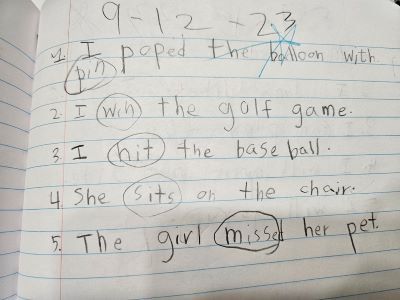 9-12-23
1. I poped the balloon with
pin
2. I win the golf game.
3. I hit the baseball.
4. She sits on the chair.
5. The girl missed her pet.